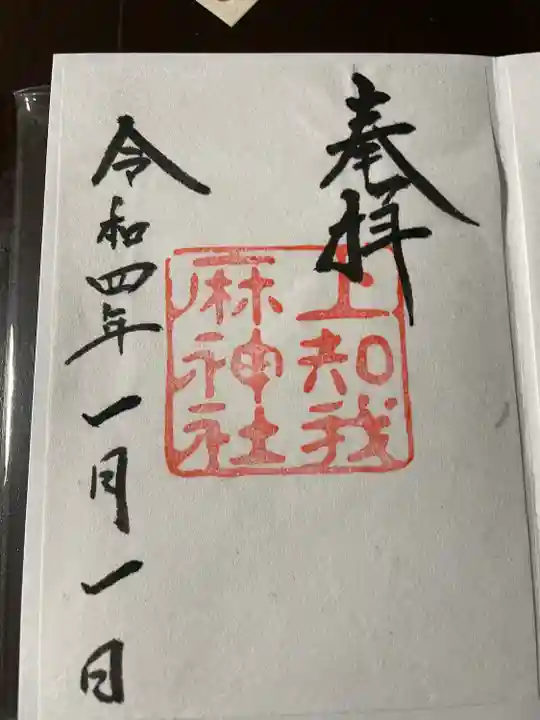 奉拝
上知我
麻神社
令和四年一月一日